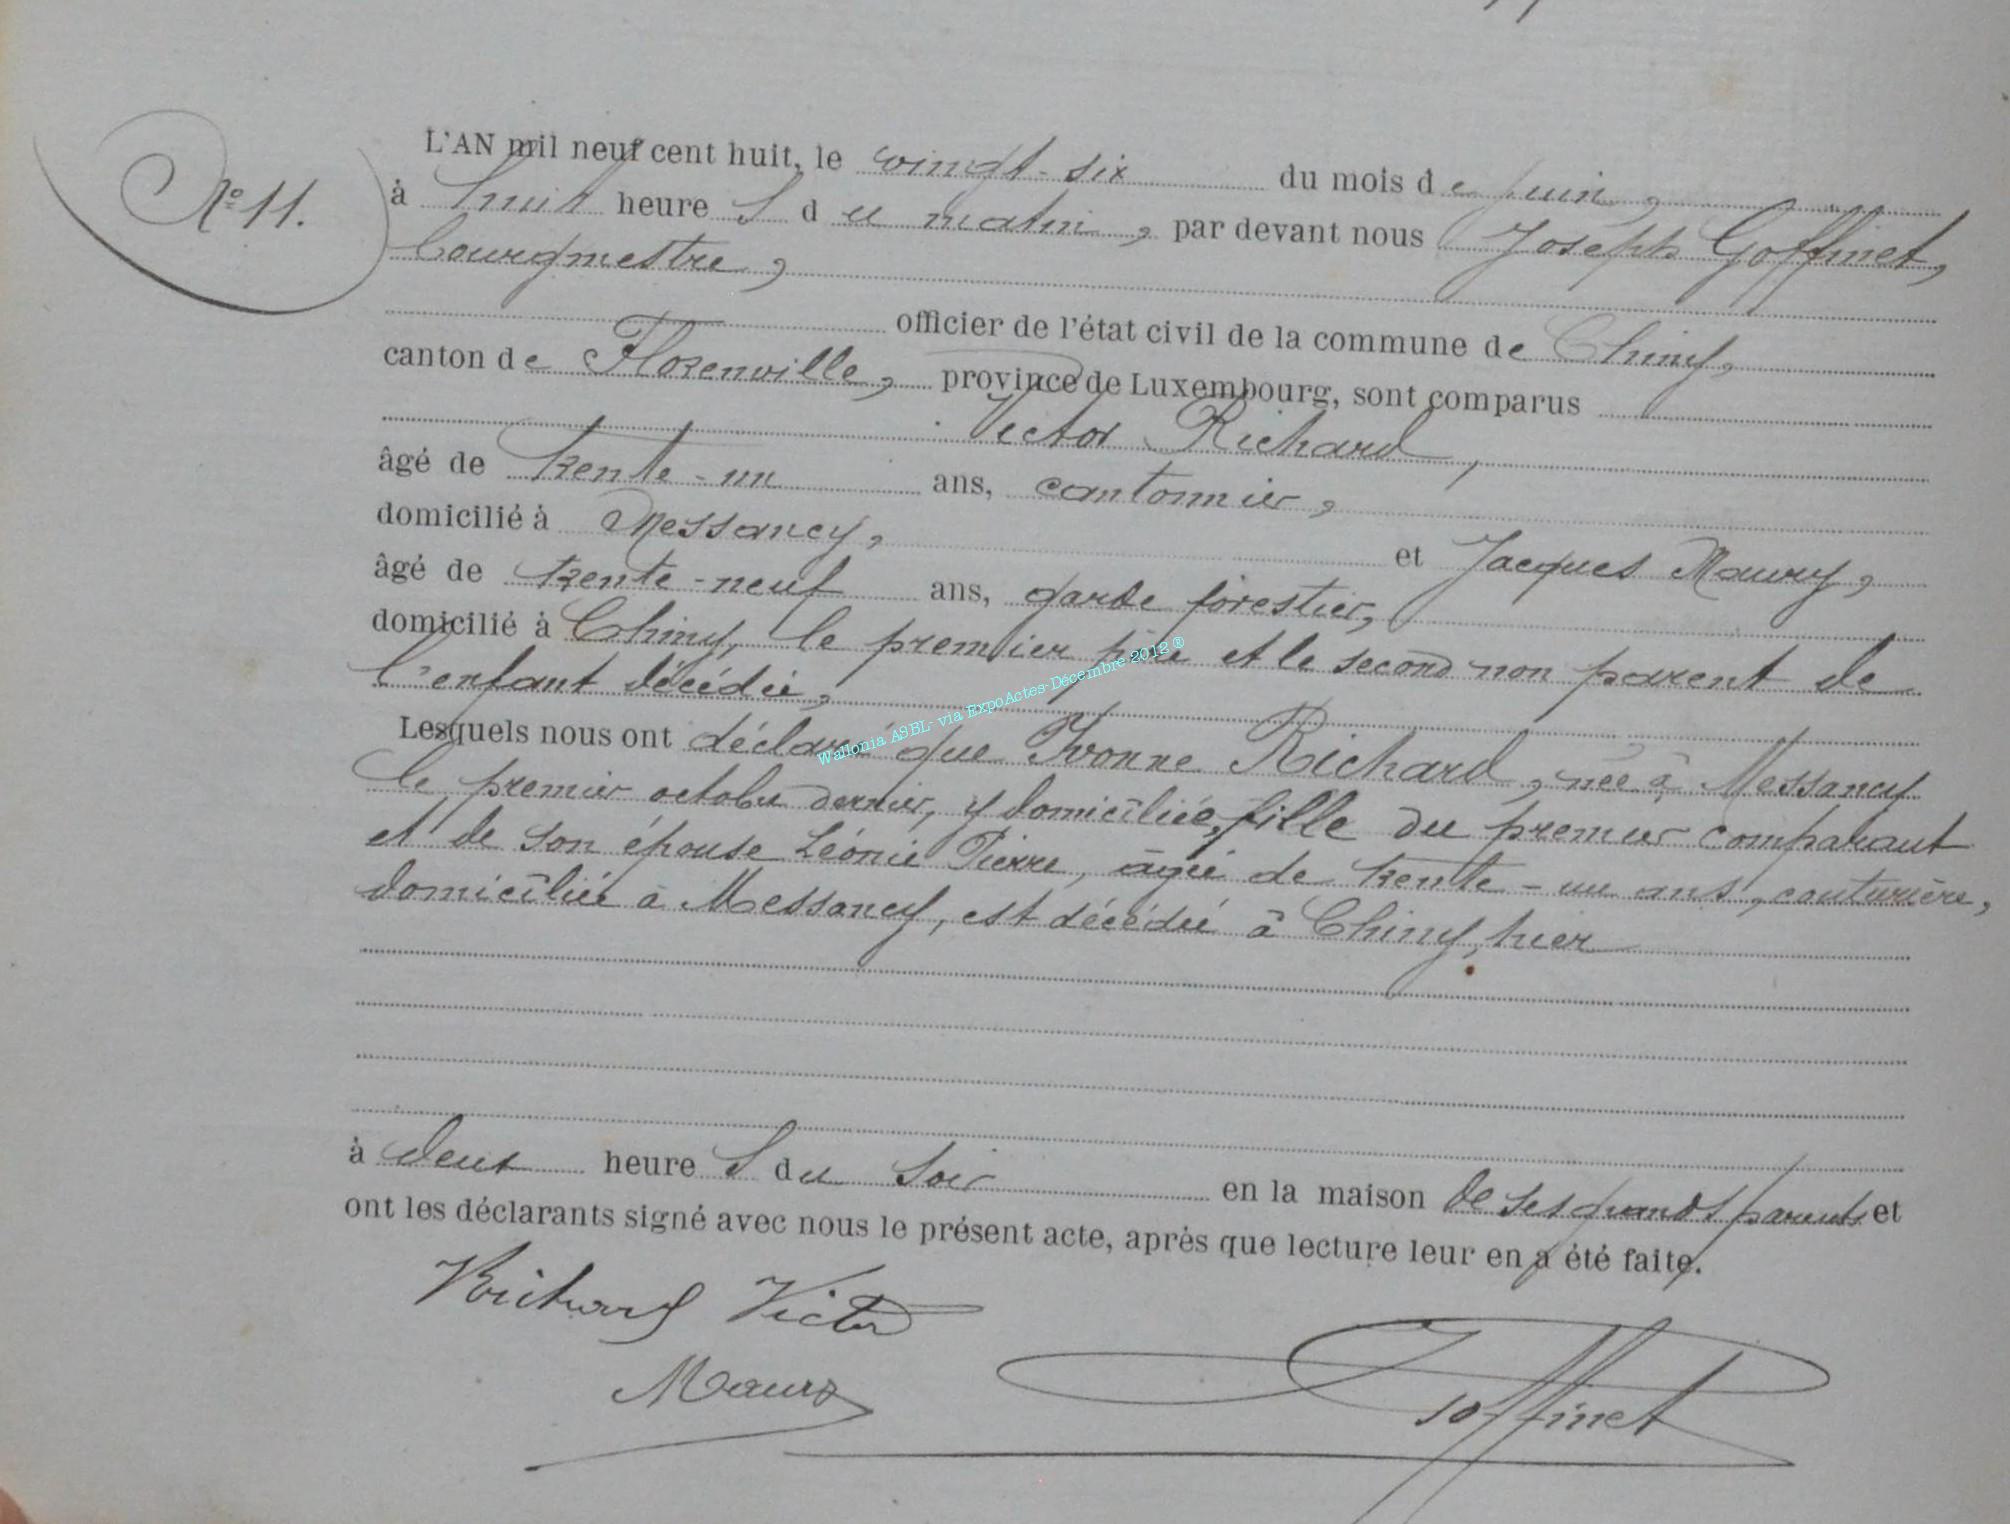 N° 11.
L'AN mil neuf cent huit, le vingt-six du mois de juin,
à huit heures du matin, par devant nous Joseph Goffinet,
bourgmestre,
officier de l'état civil de la commune de Chiny,
canton de Florenville, province de Luxembourg, sont comparus
Victor Richard,
âgé de trente-un ans, cantonnier,
domicilié à Messancy, et Jacques Maury,
âgé de trente-neuf ans, garde forestier,
domicilié à Chiny, le premier père et le second non parent de
l'enfant décédée,
Lesquels nous ont déclaré que Yvonne Richard, née à Messancy
le premier octobre dernier, y domiciliée, fille du premier comparant
et de son épouse Léonie Pierre, âgée de trente-un ans, couturière,
domiciliée à Messancy, est décédée à Chiny, hier
à deux heures du soir en la maison de ses grands parents et
ont les déclarants signé avec nous le présent acte, après que lecture leur en a été faite.
Richard Victor
Maury
Goffinet
Wallonia ASBL- via ExpoActes-Décembre 2012 ®